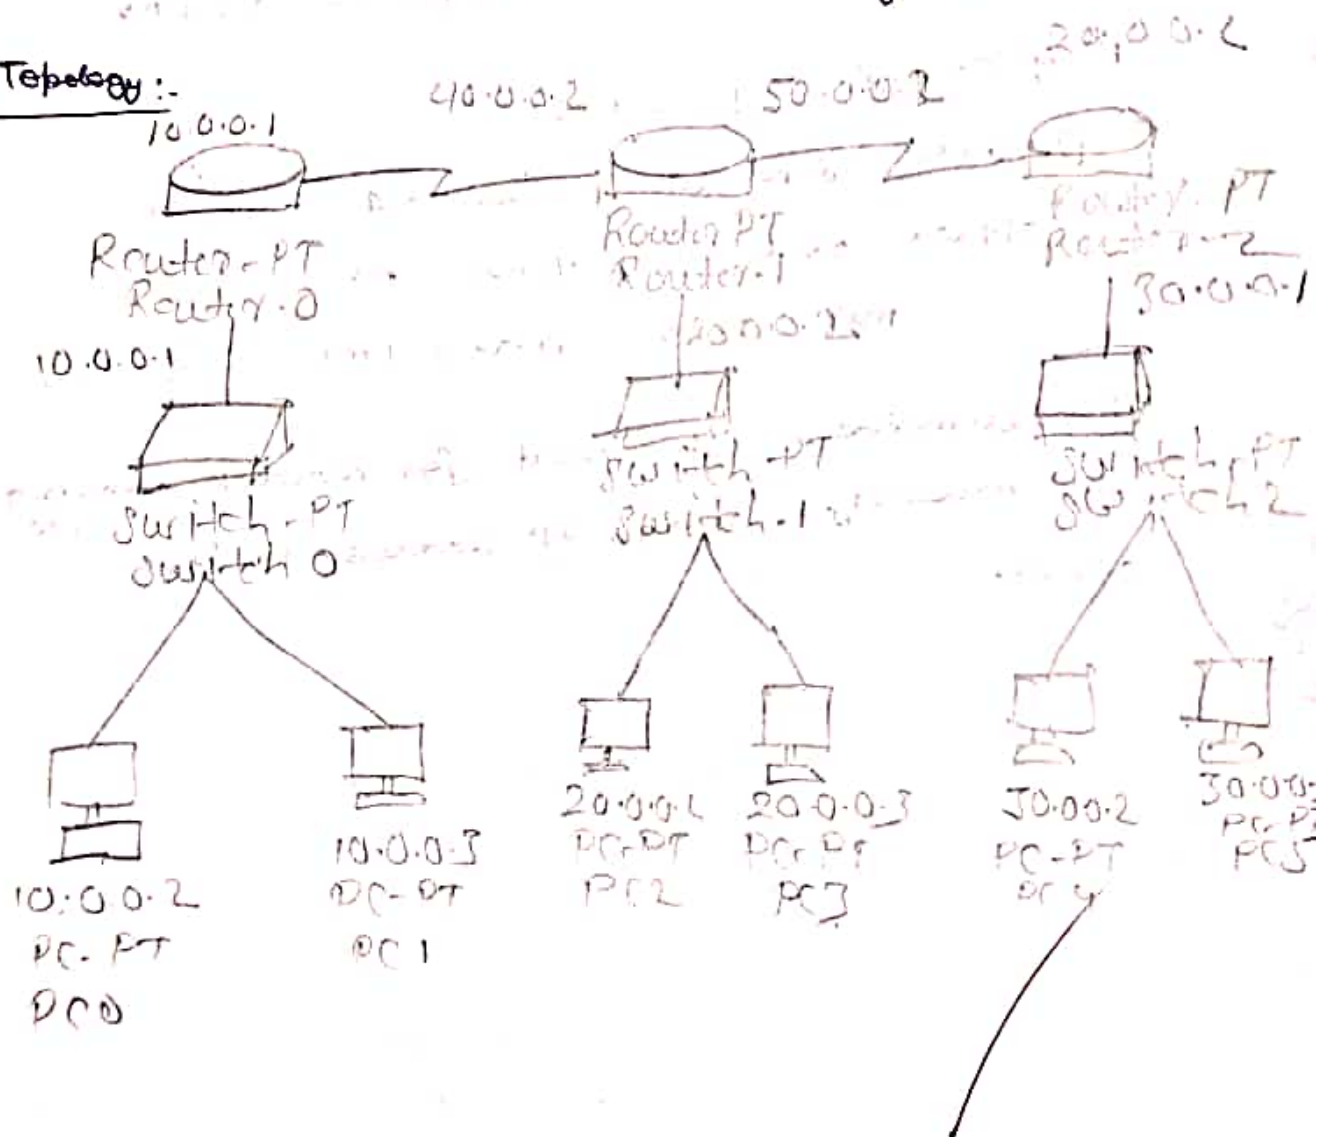 Topology:-
10.0.0.1
40.0.0.2
20.0.0.2
Router-PT
Router-0
Router PT
Router-1
Router-PT
Router-2
10.0.0.1
30.0.0.1
Switch-PT
Switch 0
Switch-PT
Switch-1
Switch-PT
Switch 2
10.0.0.2
PC-PT
PC0
10.0.0.3
PC-PT
PC1
PC-PT
PC2
20.0.0.3
PC-PT
PC3
30.00.2
PC-PT
PC4
PC5